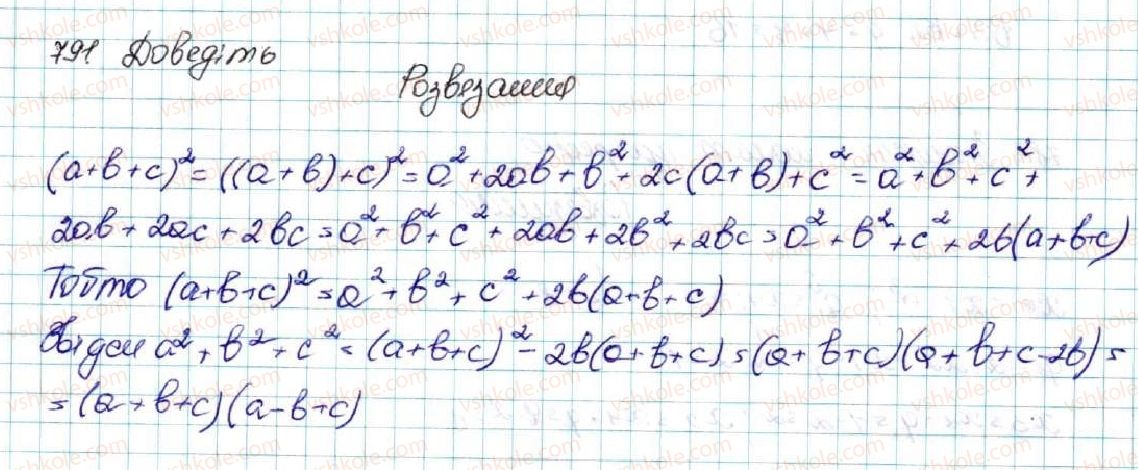 791 Доведіть
Розвязання
(a+b+c)² = ((a+b)+c)² = a² + 2ab + b² + 2c(a+b) + c² = a² + b² + c² +
2ab + 2ac + 2bc = a² + b² + c² + 2ab + 2b² + 2bc = a² + b² + c² + 2b(a+b+c)
Тобто (a+b+c)² = a² + b² + c² + 2b(a+b+c)
Звідси a² + b² + c² = (a+b+c)² - 2b(a+b+c) = (a+b+c)(a+b+c-2b) =
= (a+b+c)(a-b+c)